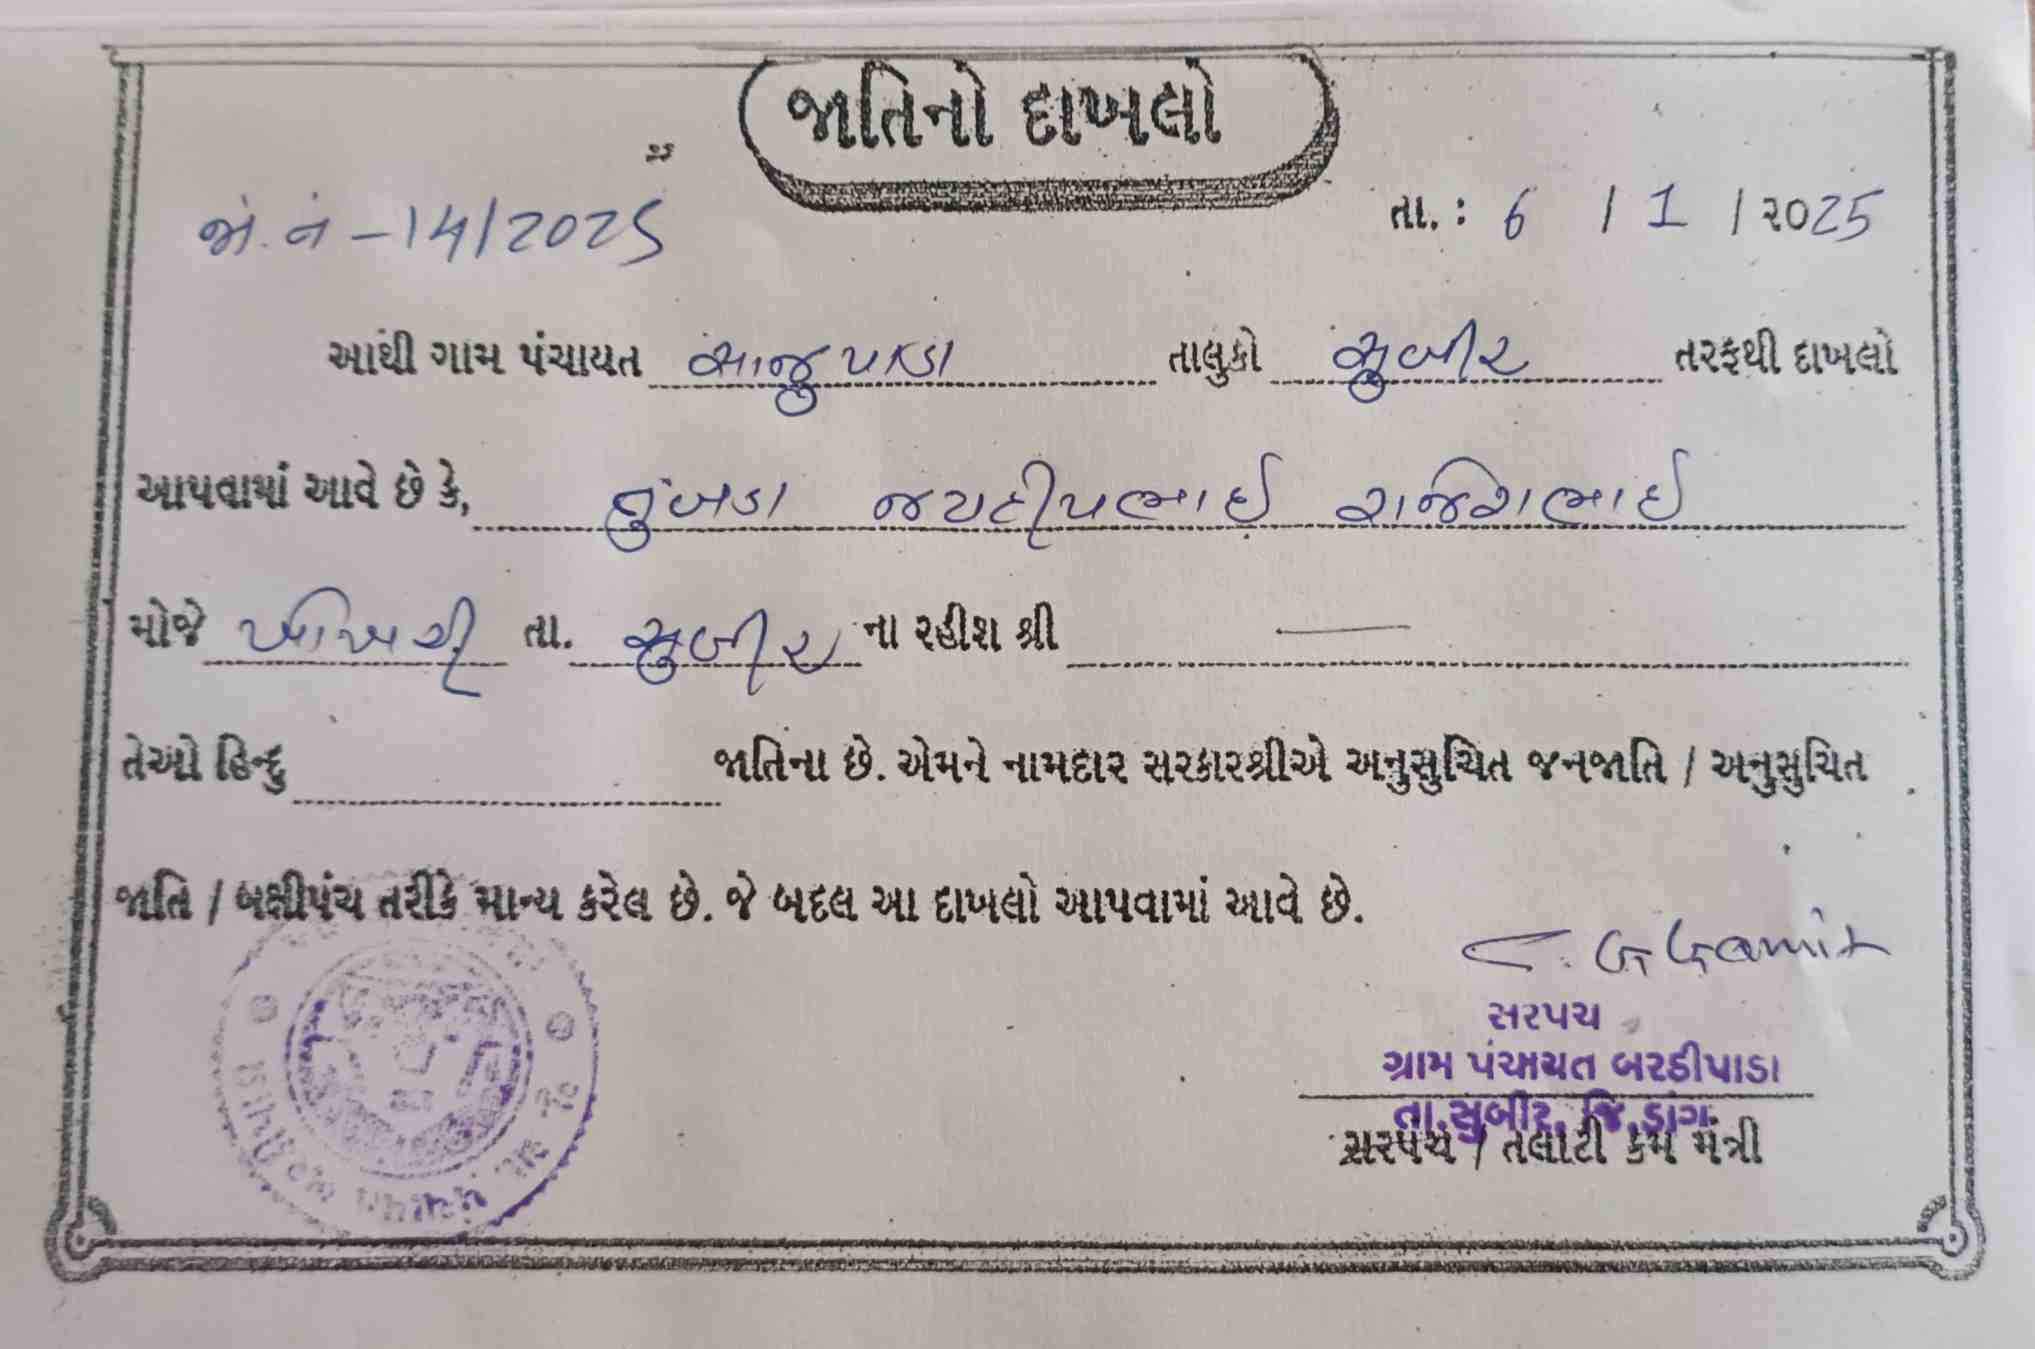 જાતિનો દાખલો
જા. નં - 14/2025
તા. : 6 / 1 / ૨૦25
આથી ગામ પંચાયત સાજુપાડા તાલુકો સુબીર તરફથી દાખલો
આપવામાં આવે છે કે, તુંબડા જયદીપભાઈ રાજેશભાઈ
મોજે તા. સુબીર ના રહીશ શ્રી —
તેઓ હિન્દુ જાતિના છે. એમને નામદાર સરકારશ્રીએ અનુસુચિત જનજાતિ / અનુસુચિત
જાતિ / બક્ષીપંચ તરીકે માન્ય કરેલ છે. જે બદલ આ દાખલો આપવામાં આવે છે.
G Gamit
સરપચ
ગ્રામ પંચાયત બરડીપાડા
તા.સુબીર, જિ.ડાંગ
સરપંચ / તલાટી કમ મંત્રી